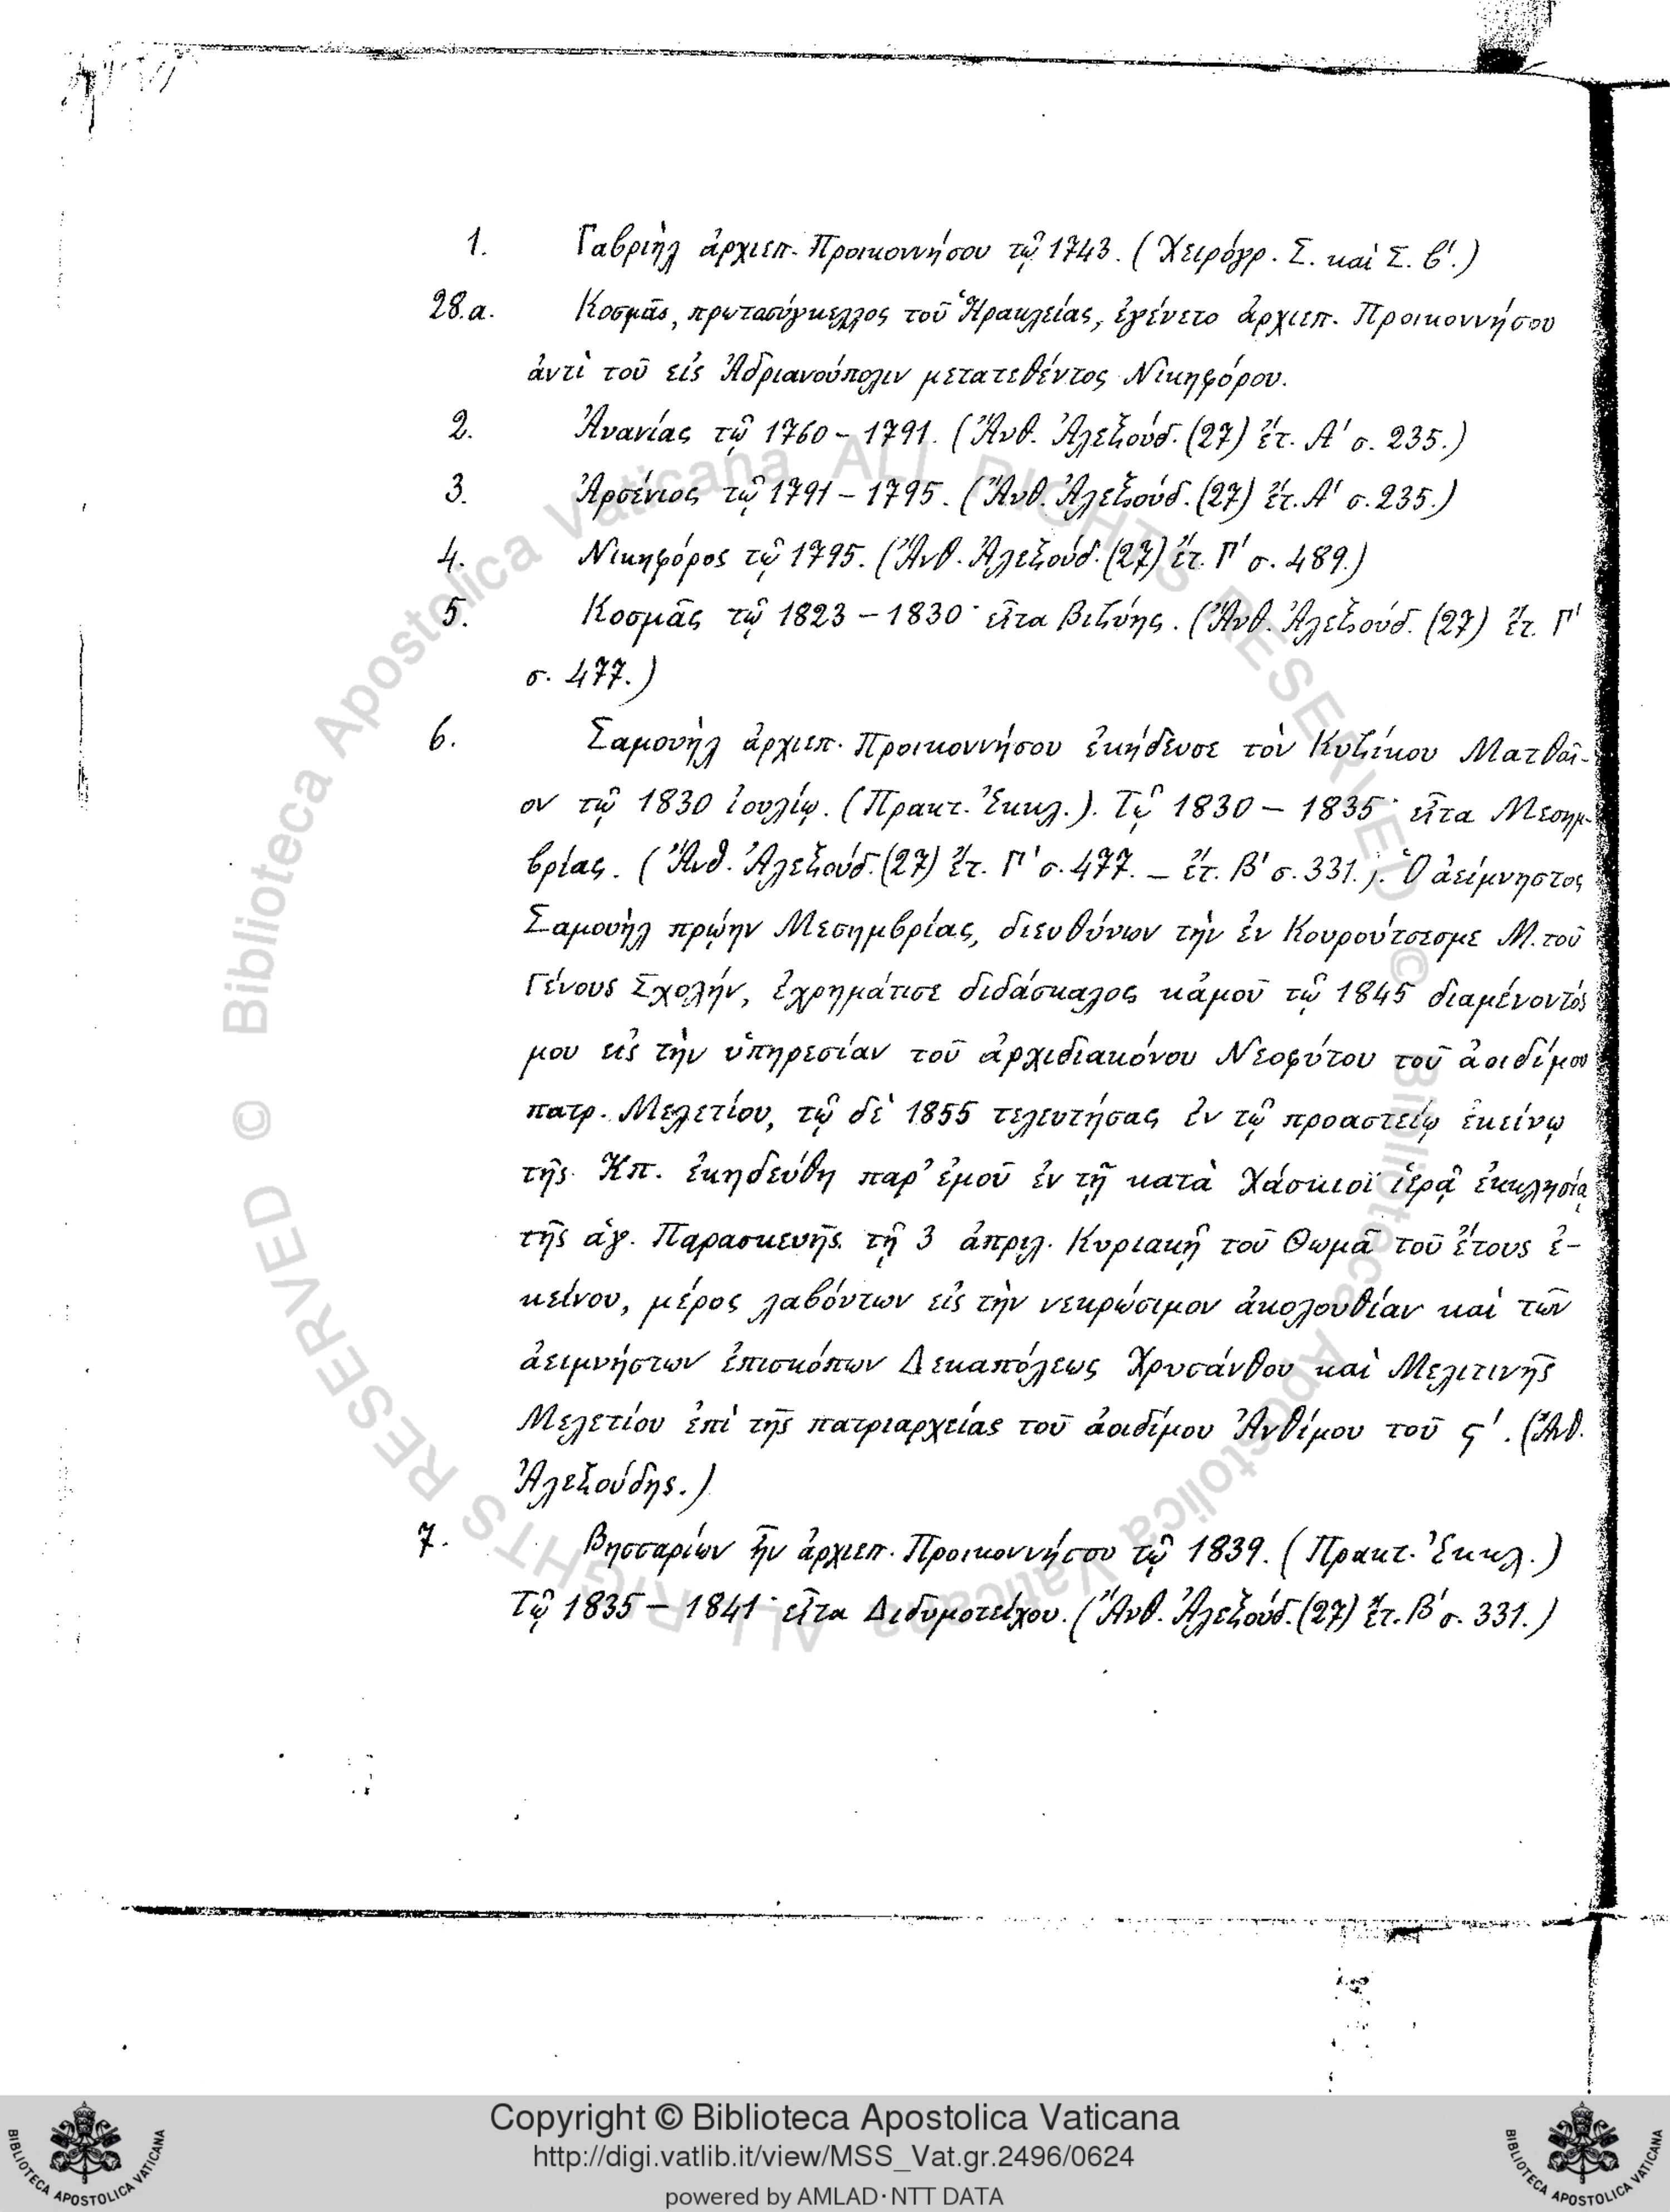 1. Γαβριὴλ ἀρχιεπ. Προικοννήσου τῷ 1743. (Χειρόγρ. Σ. καὶ Σ. β'.)
28.α. Κοσμᾶς, πρωτασύγκελλος τοῦ Ἡρακλείας, ἐγένετο ἀρχιεπ. Προικοννήσου
ἀντὶ τοῦ εἰς Ἀδριανούπολιν μετατεθέντος Νικηφόρου.
2. Ἀνανίας τῷ 1760 – 1791. (Ἄνθ. Ἀλεξούδ. (27) ἔτ. Α' σ. 235.)
3. Ἀρσένιος τῷ 1791 – 1795. (Ἄνθ. Ἀλεξούδ. (27) ἔτ. Α' σ. 235.)
4. Νικηφόρος τῷ 1795. (Ἄνθ. Ἀλεξούδ. (27) ἔτ. Γ' σ. 489.)
5. Κοσμᾶς τῷ 1823 – 1830· εἶτα Βιζύης. (Ἄνθ. Ἀλεξούδ. (27) ἔτ. Γ'
σ. 477.)
6. Σαμουὴλ ἀρχιεπ. Προικοννήσου ἐκήδευσε τὸν Κυζίκου Ματθαῖ-
ον τῷ 1830 ἰουλίῳ. (Πρακτ. Ἐκκλ.). Τῷ 1830 – 1835· εἶτα Μεσημ-
βρίας. (Ἄνθ. Ἀλεξούδ. (27) ἔτ. Γ' σ. 477. – ἔτ. Β' σ. 331.). Ὁ ἀείμνηστος
Σαμουὴλ πρῴην Μεσημβρίας, διευθύνων τὴν ἐν Κουρούτσεσμε Μ. τοῦ
Γένους Σχολήν, ἐχρημάτισε διδάσκαλος κἀμοῦ τῷ 1845 διαμένοντός
μου εἰς τὴν ὑπηρεσίαν τοῦ ἀρχιδιακόνου Νεοφύτου τοῦ ἀοιδίμου
πατρ. Μελετίου, τῷ δὲ 1855 τελευτήσας ἐν τῷ προαστείῳ ἐκείνῳ
τῆς Κπ. ἐκηδεύθη παρ' ἐμοῦ ἐν τῇ κατὰ Χάσκιοϊ ἱερᾷ ἐκκλησίᾳ
τῆς ἁγ. Παρασκευῆς τῇ 3 ἀπριλ. Κυριακῇ τοῦ Θωμᾶ τοῦ ἔτους ἐ-
κείνου, μέρος λαβόντων εἰς τὴν νεκρώσιμον ἀκολουθίαν καὶ τῶν
ἀειμνήστων ἐπισκόπων Δεκαπόλεως Χρυσάνθου καὶ Μελιτινῆς
Μελετίου ἐπὶ τῆς πατριαρχείας τοῦ ἀοιδίμου Ἀνθίμου τοῦ ϛ'. (Ἄνθ.
Ἀλεξούδης.)
7. Βησσαρίων ἦν ἀρχιεπ. Προικοννήσου τῷ 1839. (Πρακτ. Ἐκκλ.)
Τῷ 1835 – 1841· εἶτα Διδυμοτείχου. (Ἄνθ. Ἀλεξούδ. (27) ἔτ. Β' σ. 331.)
© Biblioteca Apostolica Vaticana ALL RIGHTS RESERVED
© Biblioteca Apostolica Vaticana ALL RIGHTS RESERVED
Copyright © Biblioteca Apostolica Vaticana
http://digi.vatlib.it/view/MSS_Vat.gr.2496/0624
powered by AMLAD·NTT DATA
BIBLIOTECA APOSTOLICA VATICANA
BIBLIOTECA APOSTOLICA VATICANA